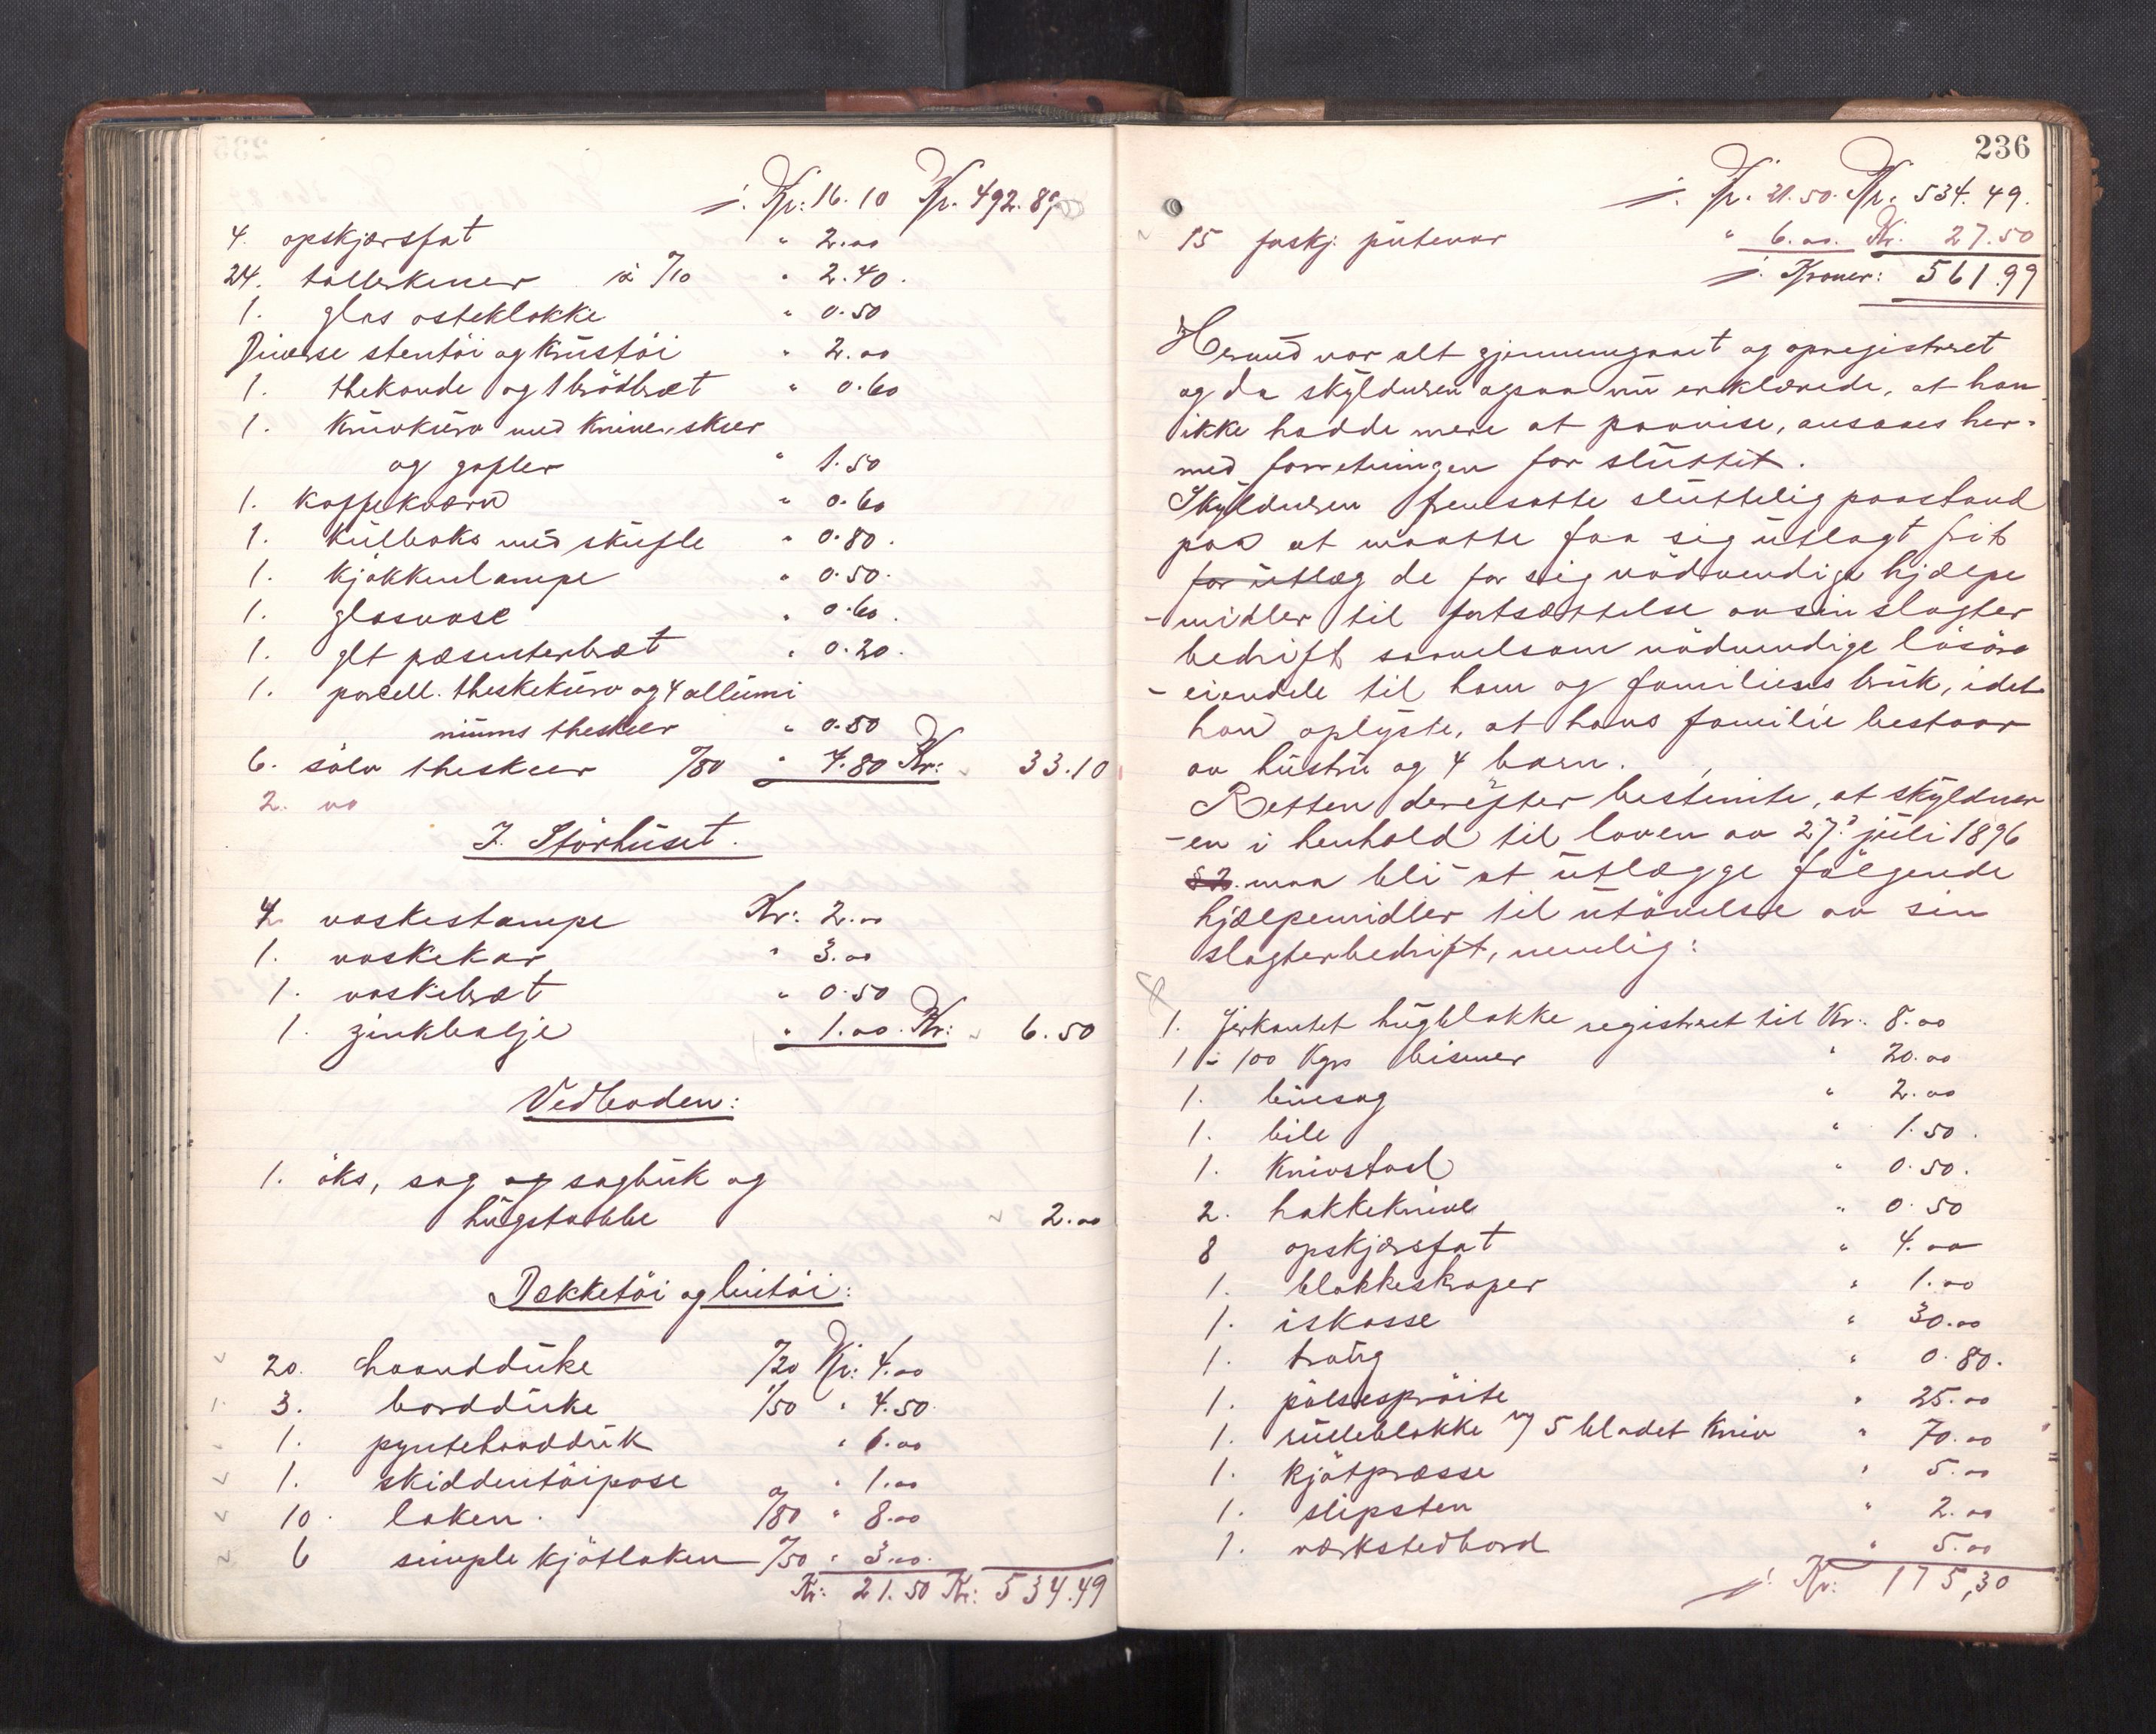 ÷. Kr: 16.10 Kr. 492.89
4. opskjærsfat " 2.00
24. tallerkener à 0/10 " 2.40.
1. glas osteklokke " 0.50
Diverse stentöi og Krustöi " 2.00
1. thekande og 1 brödbræt " 0.60
1. Knivkurv med Kniver, skeer
og gafler " 1.50
1. Kaffekværn " 0.60
1. Kulboks med skuffe " 0.80.
1. Kjøkkenlampe " 0.50.
1. glasvase " 0.60.
1. glt præsenterbræt " 0.20.
1. porcell. theskekurv og 4 allumi
niums theskeer " 0.50
6. sölv theskeer 0/80 " 4.80 Kr: 33.10
2. va
I Störhuset.
4 vaskestampe Kr: 2.00
1. vaskekar " 3.00
1. vaskebræt " 0.50
1. zinkbalje " 1.00. Kr: 6.50
Vedboden:
1. öks, sag og sagbuk og
hugstabbe 2.00
Dækketöi og lintöi:
20. haandduke 0/20 Kr: 4.00
3. bordduke 1/50 " 4.50
1. pyntehaandduk " 1.00
1. skiddentöipose " 1.00
10. laken. 0/80 " 8.00
6 simple kjötlaken 0/50 " 3.00.
Kr: 21.50 Kr: 534.49
236
÷. Kr. 21.50. Kr. 534.49.
15 forskj. putevar " 6.00. Kr. 27.50
÷. Kroner: 561.99
Hermed var alt gjennemgaaet og opregistreret
og da skyldneren ogsaa nu erklærede, at han
ikke hadde mere at paavise, ansaaes her-
med forretningen for sluttet.
Skyldneren fremsatte sluttelig paastand
paa at maatte faa sig utlagt frit
for utlæg de for sig nödvendige hjælpe
-midler til fortsættelse av sin slagter
bedrift saavelsom nödvendige lösöre
-eiendele til ham og familiens bruk, idet
han oplyste, at hans familie bestaar
av hustru og 4 barn.
Retten derefter bestemte, at skyldner
-en i henhold til loven av 27? juli 1896
§ 2. maa bli at utlægge fölgende
hjælpemidler til utövelse av sin
slagterbedrift, nemlig:
1. firkantet hugblokke registreret til Kr: 8.00
1 - 100 Kgrs bismer " 20.00
1. buesag " 2.00
1. bile " 1.50.
1. Knivstaal " 0.50.
2. hakkeknive " 0.50
8 opskjærsfat " 4.00
1. blokkeskraper " 1.00
1. iskasse " 30.00
1. traug " 0.80.
1. pölsespröite " 25.00
1. rulleblokke m/ 5 bladet Kniv " 70.00
1. kjötpresse " 5.00
1. slipsten " 2.00
1. værkstedbord " 5.00
÷. Kr: 175,30